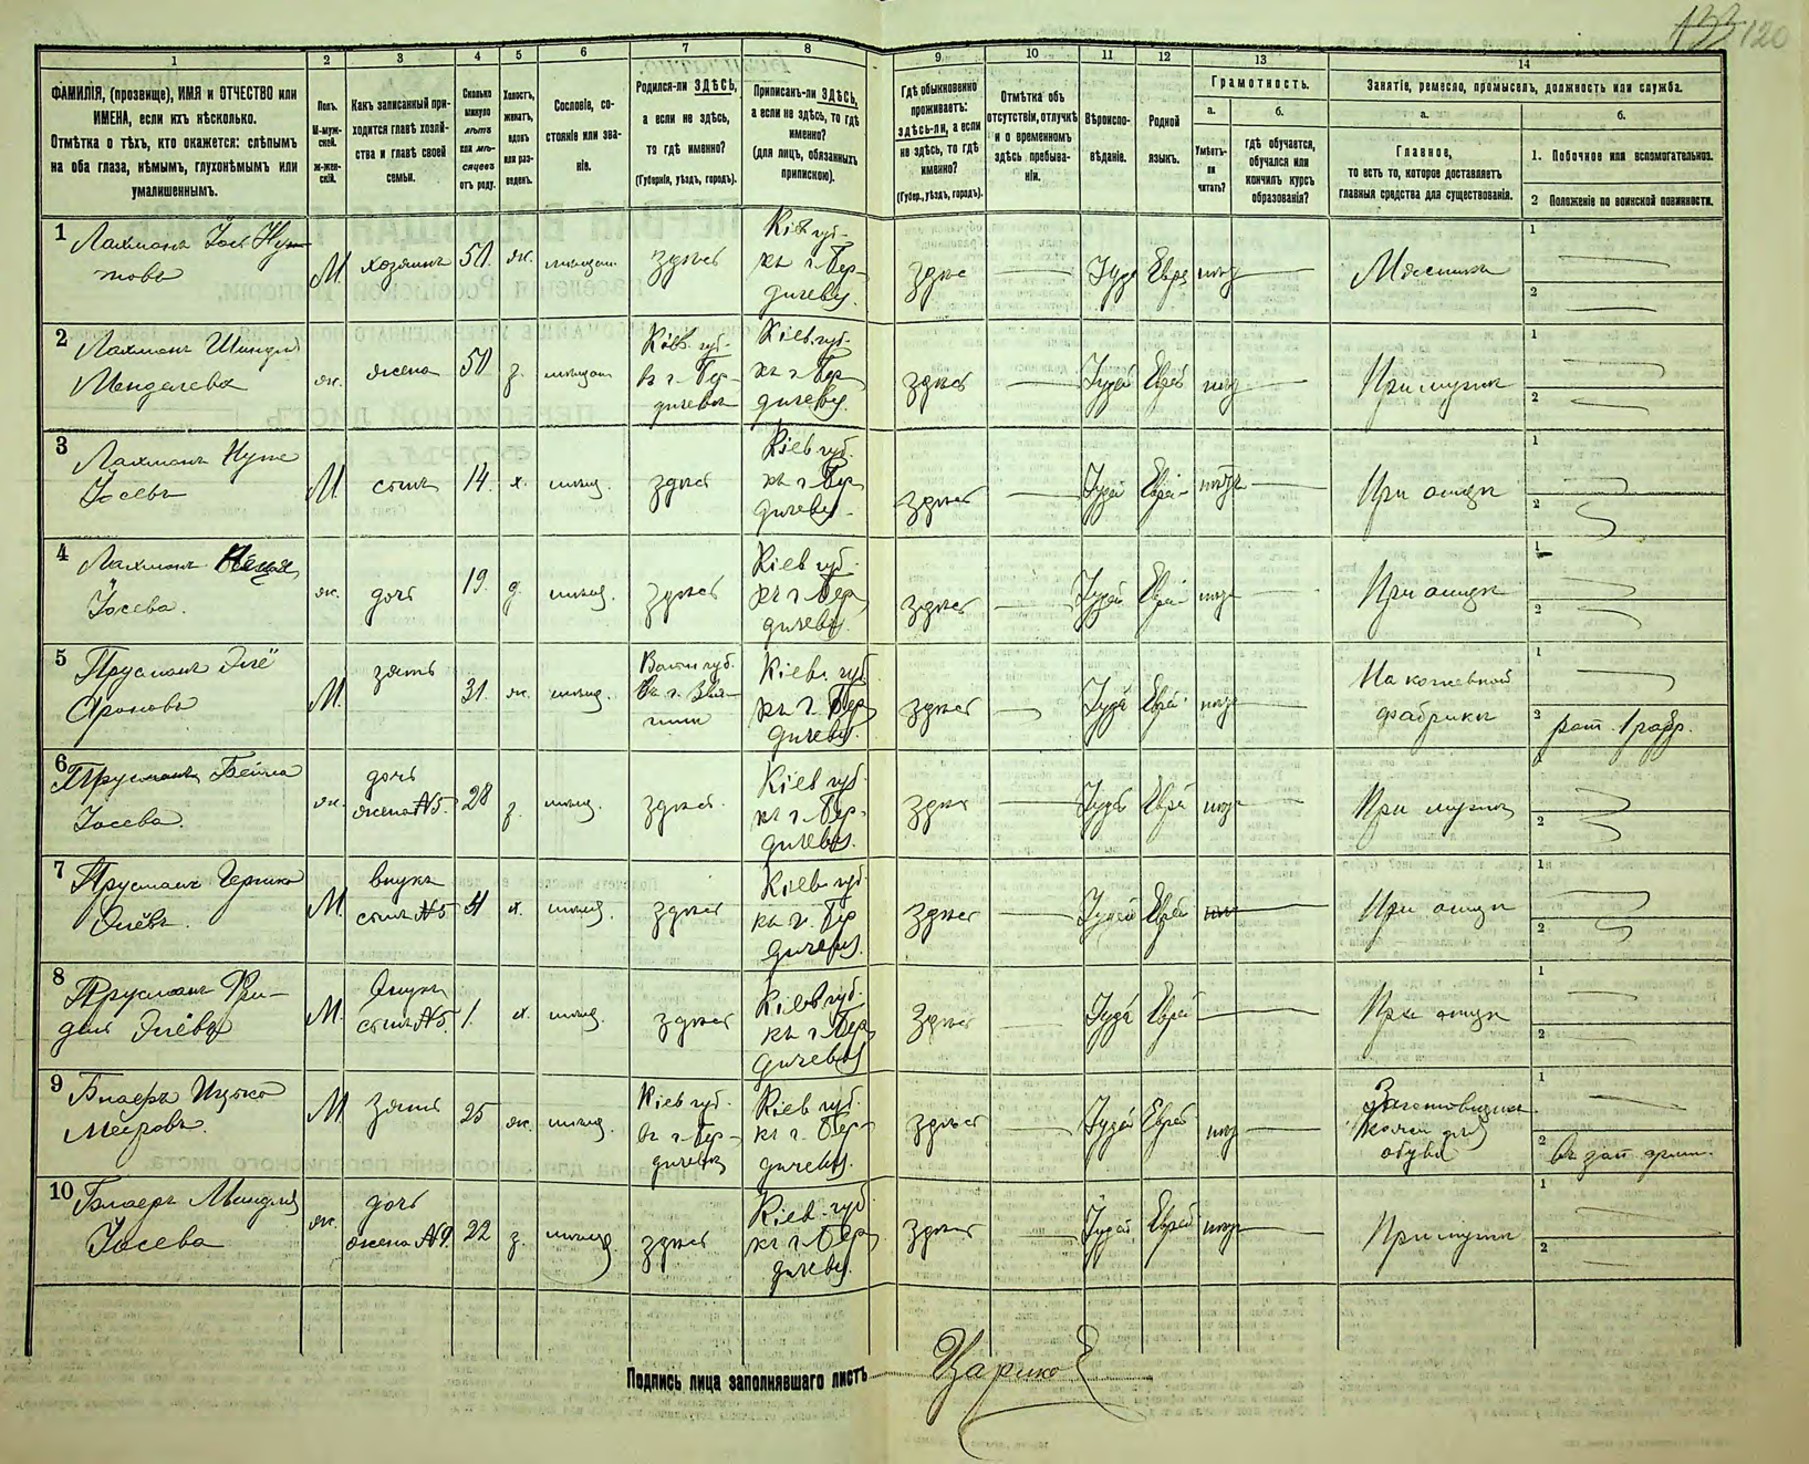 133 120
1 2 3 4 5 6 7 8 9 10 11 12 13 14
ФАМИЛІЯ, (прозвище), ИМЯ и ОТЧЕСТВО или
ИМЕНА, если ихъ нѣсколько.
Отмѣтка о тѣхъ, кто окажется: слѣпымъ
на оба глаза, нѣмымъ, глухонѣмымъ или
умалишеннымъ.
Полъ.
М-муж-
ской.
ж-жен-
скій.
Какъ записанный при-
ходится главѣ хозяй-
ства и главѣ своей
семьи.
Сколько
минуло
лѣтъ
или мѣ-
сяцевъ
отъ роду.
Холостъ,
женатъ,
вдовъ
или раз-
веденъ.
Сословіе, со-
стояніе или зва-
ніе.
Родился-ли ЗДѢСЬ,
а если не здѣсь,
то гдѣ именно?
(Губернія, уѣздъ, городъ).
Приписанъ-ли ЗДѢСЬ,
а если не здѣсь, то гдѣ
именно?
(для лицъ, обязанныхъ
припискою).
Гдѣ обыкновенно
проживаетъ:
здѣсь-ли, а если
не здѣсь, то гдѣ
именно?
(Губер., уѣздъ, городъ).
Отмѣтка объ
отсутствіи, отлучкѣ
и о временномъ
здѣсь пребыва-
ніи.
Вѣроиспо-
вѣданіе.
Родной
языкъ.
Грамотность.
а.
Умѣетъ-
ли
читать?
б.
гдѣ обучается,
обучался или
кончилъ курсъ
образованія?
Занятіе, ремесло, промыселъ, должность или служба.
а.
Главное,
то есть то, которое доставляетъ
главныя средства для существованія.
б.
1. Побочное или вспомогательное.
2 Положеніе по воинской повинности.
1 Лахманъ Іось Нут-
товъ
М. хозяинъ 50. ж. мѣщан. здѣсь
Кіев. губ.
къ г. Бер-
дичеву.
здѣсь — Іуде Евре нѣт —
Мясникъ
1
2
2 Лахманъ Шиндля
Менделева
ж. жена 50 з. мѣщан
Кіев. губ.
въ г. Бер-
дичевѣ
Кіев. губ.
къ г. Бер-
дичеву.
здѣсь — Іудей Еврей нѣт —
При мужѣ
1
2
3 Лахманъ Нута
Іосевъ
М. сынъ 14. х. мѣщ. здѣсь
Кіев губ.
къ г. Бер
дичеву.
здѣсь — Іудей Еврей нѣтъ —
При отцѣ
1
2
4 Лахманъ
Іосева.
ж. дочь 19. д. мѣщ. здѣсь
Кіев губ.
къ г. Бер
дичеву.
здѣсь — Іудей Еврей нѣт —
При отцѣ
1
2
5 Прусманъ Элё
Ароновъ
М. зять 31. ж. мѣщ.
Волын губ.
Кіев. губ.
къ г. Бер
дичеву.
здѣсь — Іудей Еврей нѣт —
На кожевной
фабрикѣ
1
2 рат. 1 разр.
6 Прусманъ Бейла
Іосева.
ж. дочь
жена №5. 28 з. мѣщ. здѣсь.
Кіев губ.
къ г. Бер-
дичеву.
здѣсь — Іудей Еврей нѣт —
При мужѣ
2
7 Прусманъ Гершко
Элёвъ.
М. внукъ
сынъ №5 4 х. мѣщ. здѣсь
Кіев губ.
къ г. Бер
дичеву.
здѣсь — Іудей Еврей —
При отцѣ
1
2
8 Прусманъ Фи-
дель Элёвъ
М. Внукъ
сынъ №5. 1. х. мѣщ. здѣсь
Кіев губ.
къ г. Бер
дичеву
здѣсь — Іудей Еврей —
При отцѣ
1
2
9 Бплаеръ Ицько
Меировъ.
М зять 25 ж. мѣщ.
Кіев губ.
въ г. Бер-
дичевѣ
Кіев губ.
къ г. Бер-
дичеву.
здѣсь — Іудей Еврей нѣт
Заготовщикъ
кожи для
обуви
1
2 въ зап. арміи.
10 Мындля
Іосева
ж. дочь
жена №9. 22 з. мѣщ. здѣсь
Кіев. губ
къ г. Бер
дичеву.
здѣсь — Іудей. Еврей нѣт —
При мужѣ
1
2
Подпись лица заполнявшаго листъ